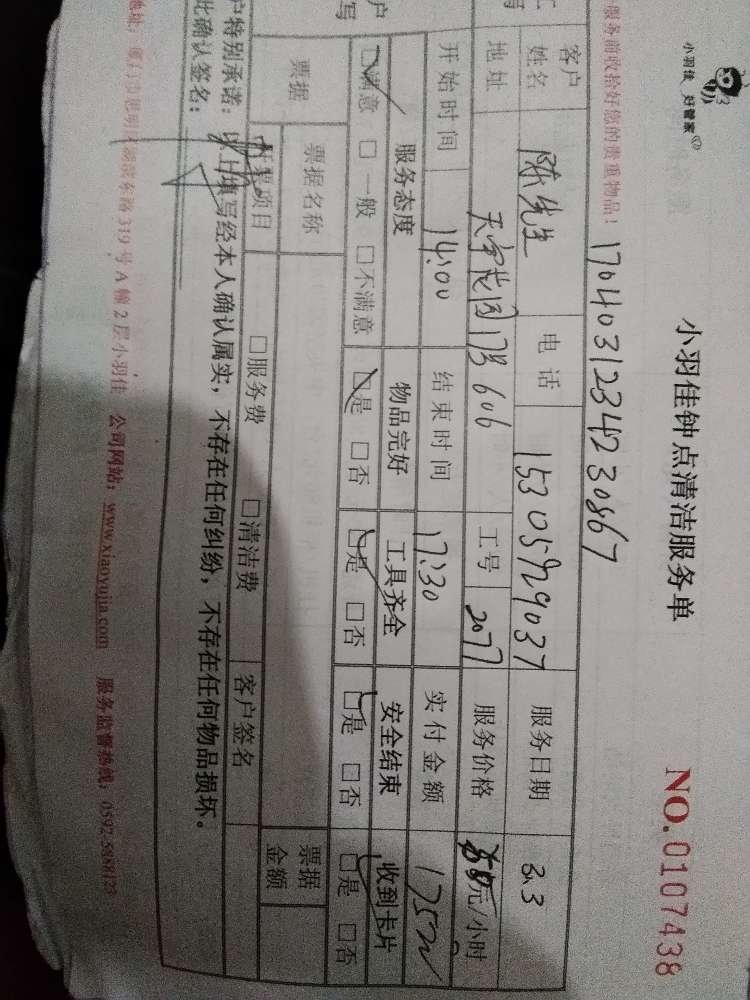 小羽佳 好管家
小羽佳钟点清洁服务单
NO.0107438
服务前收拾好您的贵重物品！
1704031234230867
客户姓名 陈先生 电话 15305929037 服务日期 3.3
地址 天宝花园17号606 工号 2077 服务价格 元/小时
开始时间 14:00 结束时间 17:30 实付金额 175元
服务态度 物品完好 工具齐全 安全结束 收到卡片
□满意 □一般 □不满意 □是 □否 □是 □否 □是 □否 □是 □否
票据 票据名称 票据金额
开票项目 □服务费 □清洁费 客户签名
户特别承诺：以上填写经本人确认属实，不存在任何纠纷，不存在任何物品损坏。
此确认签名：
地址：厦门市思明区湖滨东路319号A幢2层小羽佳 公司网站：www.xiaoyujia.com 服务监督热线：0592-5888123